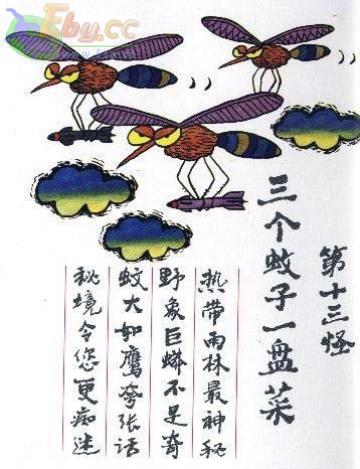 Eby.cc
第十三怪
三个蚊子一盘菜
热带雨林最神秘
野象巨蟒不足奇
蚊大如鹰夸张话
秘境令您更痴迷